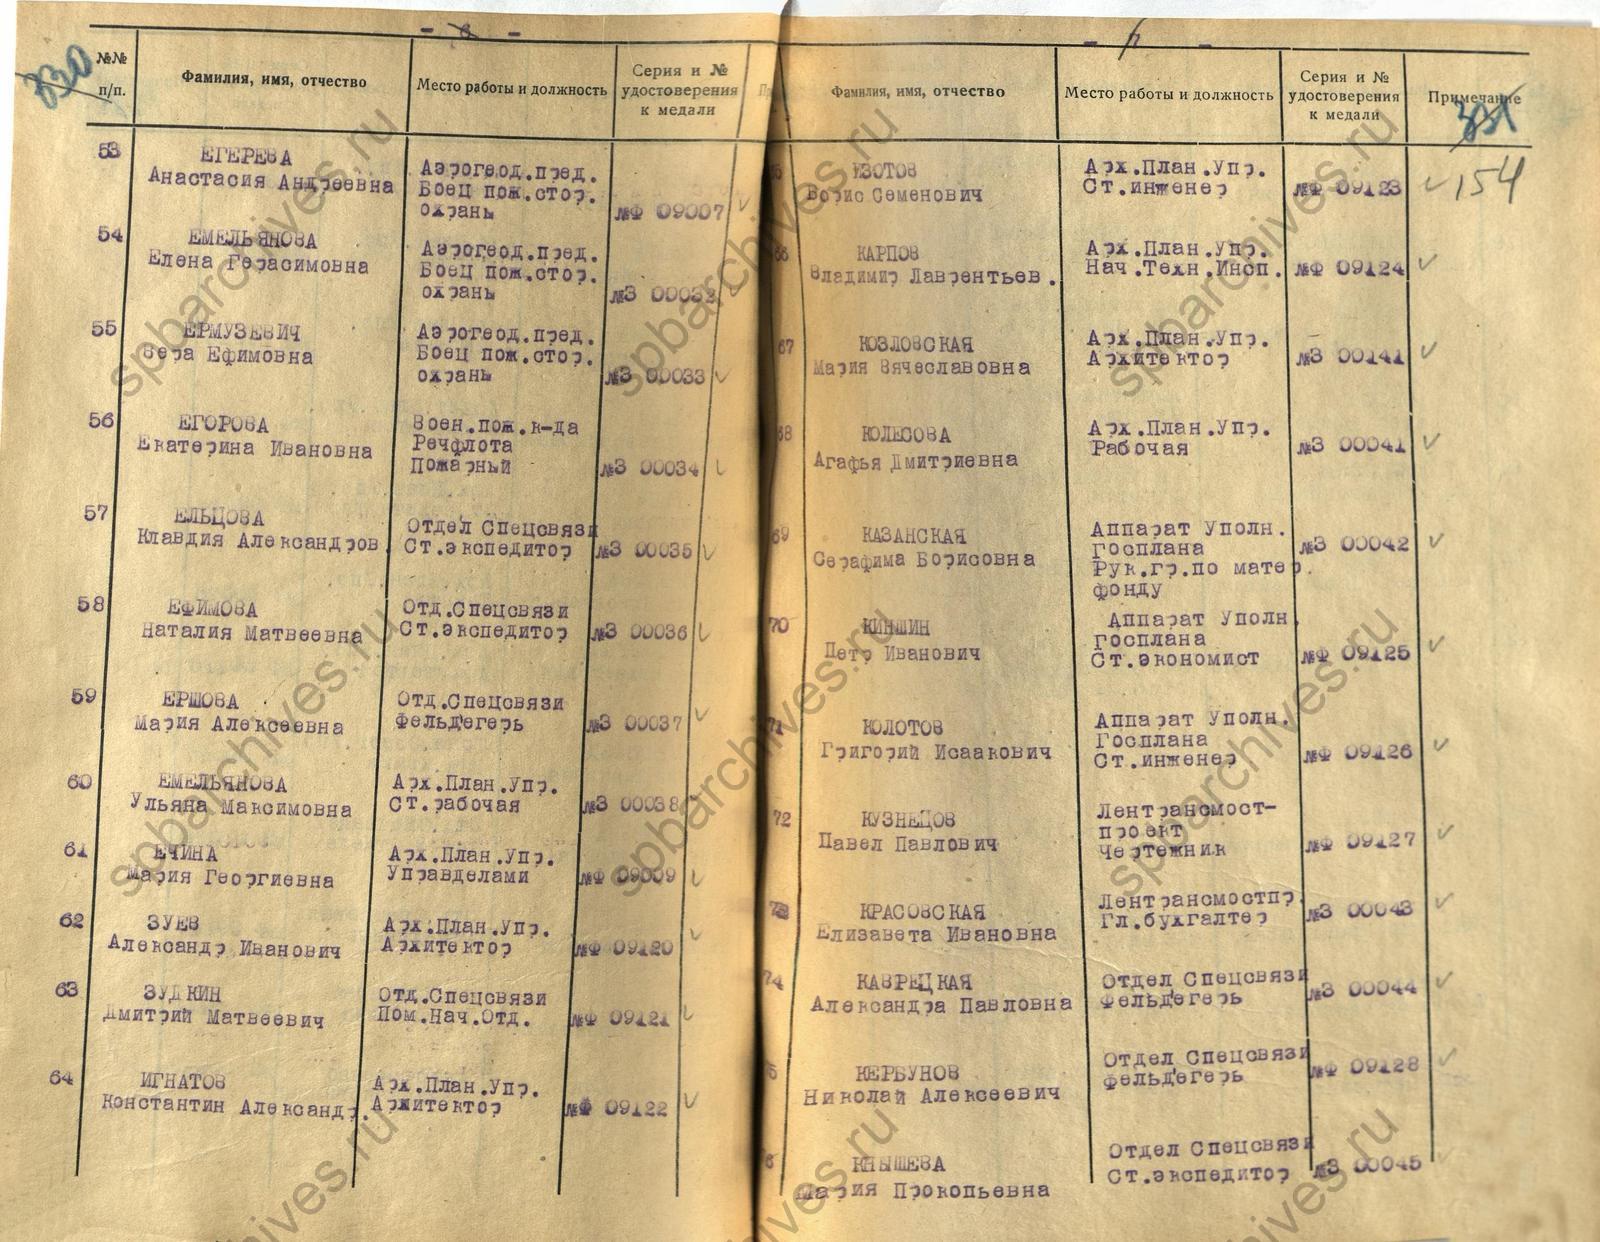 - 6 -
330
№№
п/п.
Фамилия, имя, отчество
Место работы и должность
Серия и №
удостоверения
к медали
53
ЕГЕРЕВА
Анастасия Андреевна
Аэрогеод.пред.
Боец пож.стор.
охраны
№Ф 09007
54
ЕМЕЛЬЯНОВА
Елена Герасимовна
Аэрогеод.пред.
Боец пож.стор.
охраны
№З 00032
55
ЕРМУЗЕВИЧ
Вера Ефимовна
Аэрогеод.пред.
Боец пож.стор.
охраны
№З 00033
56
ЕГОРОВА
Екатерина Ивановна
Воен.пож.к-да
Речфлота
Пожарный
№З 00034
57
ЕЛЬЦОВА
Клавдия Александров.
Отдел Спецсвязи
Ст.экспедитор
№З 00035
58
ЕФИМОВА
Наталия Матвеевна
Отд.Спецсвязи
Ст.экспедитор
№З 00036
59
ЕРШОВА
Мария Алексеевна
Отд.Спецсвязи
Фельд'егерь
№З 00037
60
ЕМЕЛЬЯНОВА
Ульяна Максимовна
Арх.План.Упр.
Ст.рабочая
№З 00038
61
ЕЧИНА
Мария Георгиевна
Арх.План.Упр.
Управделами
№Ф 09009
62
ЗУЕВ
Александр Иванович
Арх.План.Упр.
Архитектор
№Ф 09120
63
ЗУДКИН
Дмитрий Матвеевич
Отд.Спецсвязи
Пом.Нач.Отд.
№Ф 09121
64
ИГНАТОВ
Константин Александр.
Арх.План.Упр.
Архитектор
№Ф 09122
Фамилия, имя, отчество
Место работы и должность
Серия и №
удостоверения
к медали
Примечание
331
ИЗОТОВ
Борис Семенович
Арх.План.Упр.
Ст.инженер
№Ф 09123
154
КАРПОВ
Владимир Лаврентьев.
Арх.План.Упр.
Нач.Техн.Инсп.
№Ф 09124
67
КОЗЛОВСКАЯ
Мария Вячеславовна
Арх.План.Упр.
Архитектор
№З 00141
68
КОЛЕСОВА
Агафья Дмитриевна
Арх.План.Упр.
Рабочая
№З 00041
69
КАЗАНСКАЯ
Серафима Борисовна
Аппарат Уполн.
госплана
Рук.гр.по матер.
фонду
№З 00042
70
КИНШИН
Петр Иванович
Аппарат Уполн.
госплана
Ст.экономист
№Ф 09125
71
КОЛОТОВ
Григорий Исаакович
Аппарат Уполн.
Госплана
Ст.инженер
№Ф 09126
72
КУЗНЕЦОВ
Павел Павлович
Лентрансмост-
проект
Чертежник
№Ф 09127
73
КРАСОВСКАЯ
Елизавета Ивановна
Лентрансмостпр.
Гл.бухгалтер
№З 00043
74
КАВРЕЦКАЯ
Александра Павловна
Отдел Спецсвязи
Фельд'егерь
№З 00044
КЕРБУНОВ
Николай Алексеевич
Отдел Спецсвязи
Фельд'егерь
№Ф 09128
КНЫШЕВА
Мария Прокопьевна
Отдел Спецсвязи
Ст.экспедитор
№З 00045
spbarchives.ru